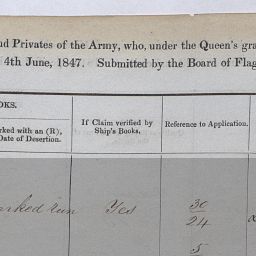 nd Privates of the Army, who, under the Queen's gra
4th June, 1847. Submitted by the Board of Flag
OKS.
rked with an (R),
Date of Desertion.
If Claim verified by
Ship's Books.
Reference to Application.
arked run
Yes
30
24
5